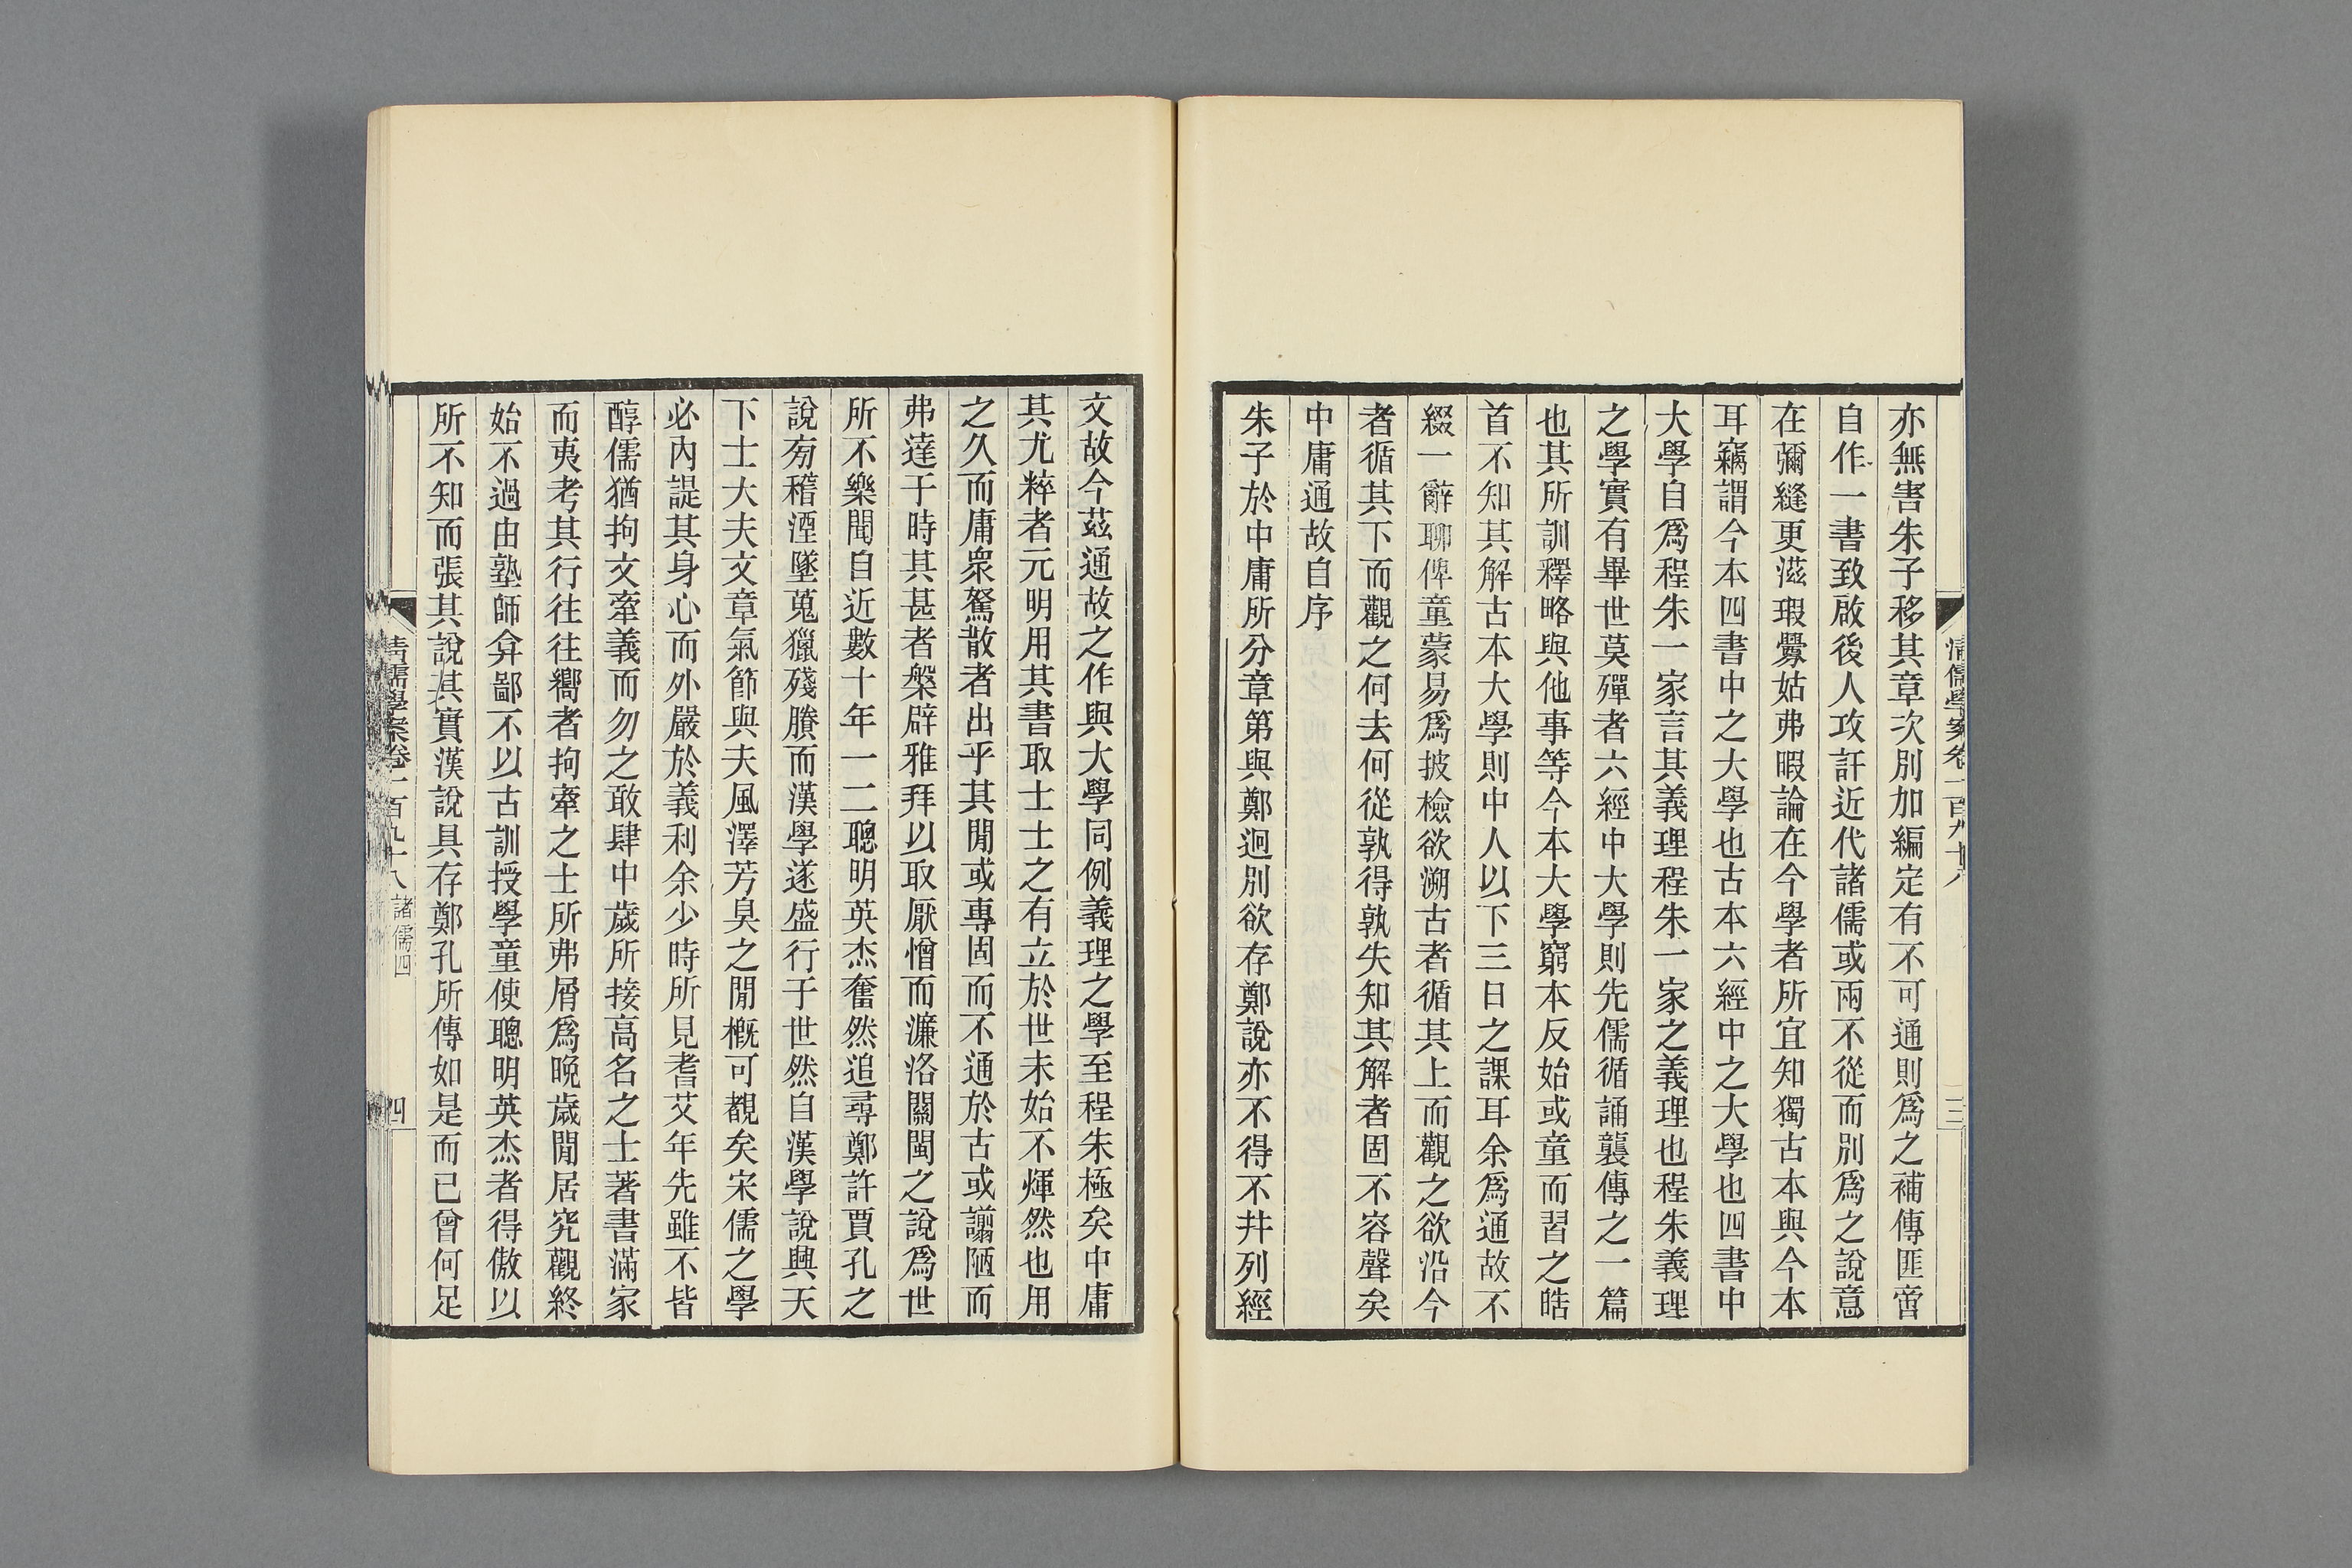 清儒學案卷一百九十八
三
亦無害朱子移其章次別加編定有不可通則爲之補傳匪啻
自作一書致啟後人攻訐近代諸儒或兩不從而別爲之說意
在彌縫更滋瑕釁姑弗暇論在今學者所宜知獨古本與今本
耳竊謂今本四書中之大學也古本六經中之大學也四書中
大學自爲程朱一家言其義理程朱一家之義理也程朱義理
之學實有畢世莫殫者六經中大學則先儒循誦襲傳之一篇
也其所訓釋略與他事等今本大學窮本反始或童而習之皓
首不知其解古本大學則中人以下三日之課耳余爲通故不
綴一辭聊俾童蒙易爲披檢欲溯古者循其上而觀之欲沿今
者循其下而觀之何去何從孰得孰失知其解者固不容聲矣
中庸通故自序
朱子於中庸所分章第與鄭迥別欲存鄭說亦不得不幷列經
文故今茲通故之作與大學同例義理之學至程朱極矣中庸
其尤粹者元明用其書取士士之有立於世未始不煇然也用
之久而庸衆駑散者出乎其閒或專固而不通於古或謭陋而
弗達于時其甚者槃辟雅拜以取厭憎而濂洛關閩之說爲世
所不樂聞自近數十年一二聰明英杰奮然追尋鄭許賈孔之
說㫄稽湮墜蒐獵殘賸而漢學遂盛行于世然自漢學說興天
下士大夫文章氣節與夫風澤芳臭之閒槪可覩矣宋儒之學
必內諟其身心而外嚴於義利余少時所見耆艾年先雖不皆
醇儒猶拘文牽義而勿之敢肆中歲所接高名之士著書滿家
而夷考其行往往嚮者拘牽之士所弗屑爲晚歲閒居究觀終
始不過由塾師弇鄙不以古訓授學童使聰明英杰者得傲以
所不知而張其說其實漢說具存鄭孔所傳如是而已曾何足
清儒學案卷一百九十八 諸儒四
四